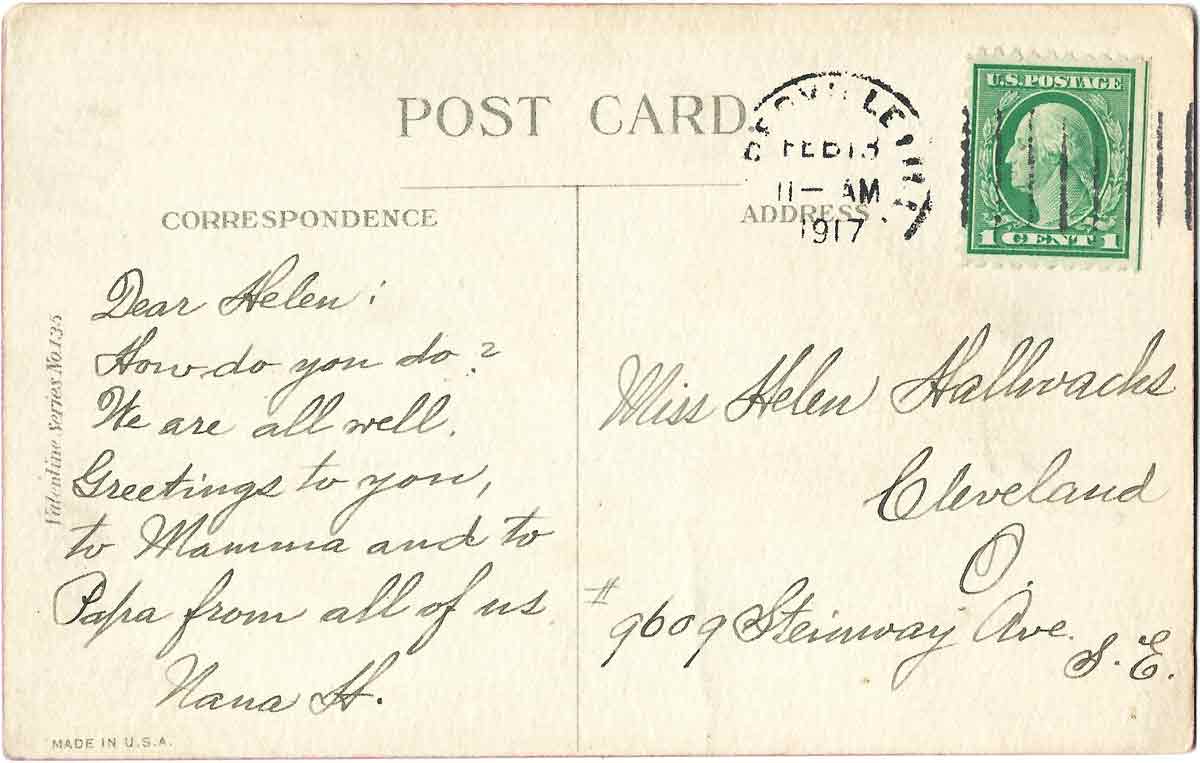 POST CARD
FEB 13
11 - AM
1917
U.S. POSTAGE
1 CENT 1
CORRESPONDENCE
ADDRESS
Valentine Series No. 135
Dear Helen:
How do you do?
We are all well.
Greetings to you,
to Mamma and to
Papa from all of us
Nana H.
Miss Helen Hallwachs
Cleveland
O.
# 9609 Steinway Ave.
S. E.
MADE IN U.S.A.